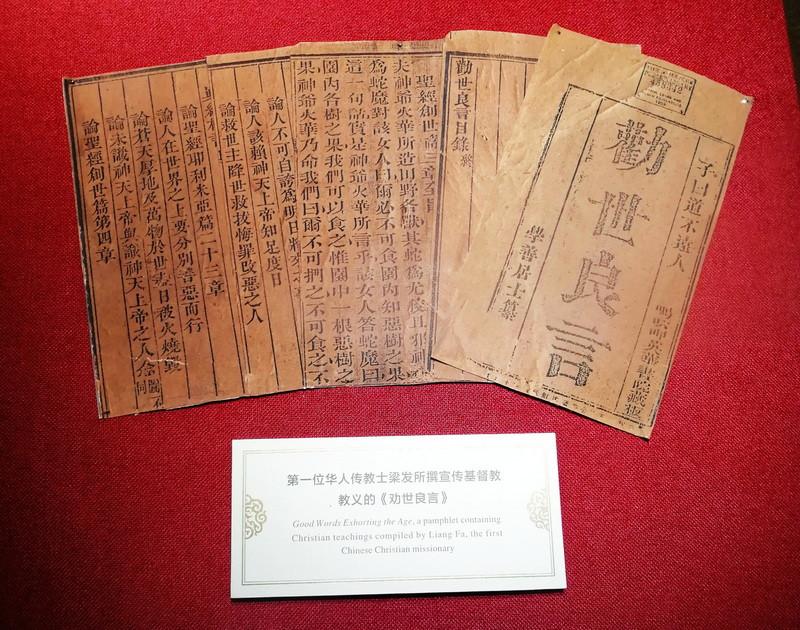 子曰道不遠人
英華書院藏板
勸世良言
學善居士纂
勸世良言目錄
聖經創世篇三章
夫神爺火華所造田野各獸其蛇為尤狡且邪神
為蛇魔對該女人曰爾必不可食園內知惡樹之果
這一句話實是神爺火華所言乎該女人答蛇魔曰
園內各樹之果我們可以食之惟園中一根惡樹之
果神爺火華乃命我們曰爾不可捫之不可食之不
論人不可自誇為明日將來
論人該賴神天上帝知足度日
論救世主降世救拔悔罪改惡之人
論聖經耶利米亞篇二十三章
論人在世界之上要分別善惡而行
論蒼天厚地及萬物於世末日被火燒毀
論未識神天上帝與識神天上帝之人念
論聖經創世篇第四章
第一位华人传教士梁发所撰宣传基督教
教义的《劝世良言》
Good Words Exhorting the Age, a pamphlet containing
Christian teachings compiled by Liang Fa, the first
Chinese Christian missionary